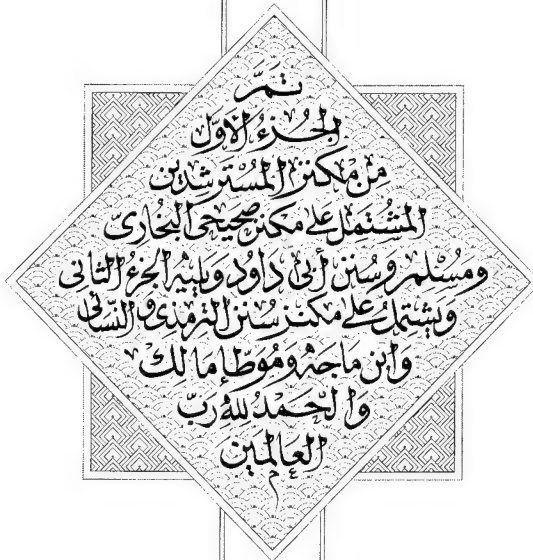 تمَّ
الجُزءُ الأوّل
مِن مكنز المُسترشدين
المُشتمل عَلى مكنز صحيحى البُخارىّ
ومُسْلم وسُنن أبى داوُد وَيليه الجزءُ الثانى
وَيشتمل على مكنز سُنن الترمذى والنسائى
وابن ماجه ومُوَطأ مالك
والحَمدُ لله رَبّ
العالمين